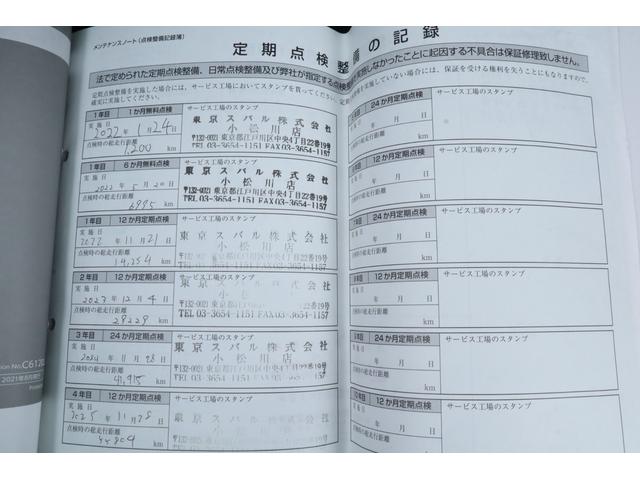 メンテナンスノート（点検整備記録簿）
定期点検整備の記録
法で定められた定期点検整備、日常点検整備及び弊社が指定する点検
を実施しなかったことに起因する不具合は保証修理致しません。
定期点検整備を実施した場合には、サービス工場においてスタンプを貰ってください。
確実に実施してください。
を実施していない場合には、保証を受ける権利を失うことにもなりますので、
1年目 1か月無料点検 サービス工場のスタンプ
実施日 2022年 1月 24日
点検時の総走行距離
1,200 km
東京スバル株式会社
小松川店
〒132-0021 東京都江戸川区中央4丁目22番19号
TEL 03-3654-1151 FAX 03-3654-1157
1年目 6か月無料点検 サービス工場のスタンプ
実施日 2022年 5月 20日
点検時の総走行距離
6995 km
東京スバル株式会社
小松川店
〒132-0021 東京都江戸川区中央4丁目22番19号
TEL 03-3654-1151 FAX 03-3654-1157
1年目 12か月定期点検 サービス工場のスタンプ
実施日 2022年 11月 21日
点検時の総走行距離
14,254 km
東京スバル株式会社
小松川店
〒132-0021 東京都江戸川区中央4丁目22番19号
TEL 03-3654-1151 FAX 03-3654-1157
2年目 12か月定期点検 サービス工場のスタンプ
実施日 2023年 12月 4日
点検時の総走行距離
29229 km
東京スバル株式会社
小松川店
〒132-0021 東京都江戸川区中央4丁目22番19号
TEL 03-3654-1151 FAX 03-3654-1157
3年目 24か月定期点検 サービス工場のスタンプ
実施日 2024年 11月 28日
点検時の総走行距離
41,915 km
東京スバル株式会社
小松川店
TEL 03-3654-1151 FAX 03-3654-1157
4年目 12か月定期点検 サービス工場のスタンプ
実施日 2025年 11月 28日
点検時の総走行距離
km
24か月定期点検 サービス工場のスタンプ
年 月 日
総走行距離
km
12か月定期点検 サービス工場のスタンプ
年 月 日
総走行距離
km
24か月定期点検 サービス工場のスタンプ
年 月 日
総走行距離
km
12か月定期点検 サービス工場のスタンプ
年 月 日
総走行距離
km
24か月定期点検 サービス工場のスタンプ
年 月 日
総走行距離
km
12か月定期点検 サービス工場のスタンプ
年 月 日
総走行距離
km
2021年8月